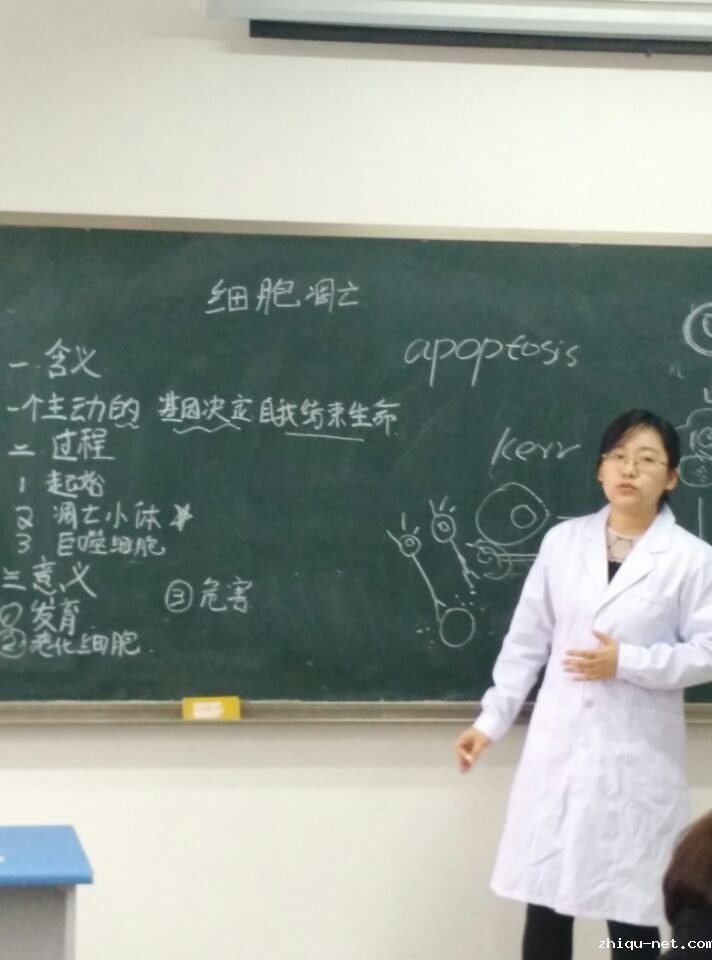 细胞凋亡
apoptosis
一.含义
一个主动的 基因决定自我结束生命.
kerr
二 过程
1 起始
2 凋亡小体
3 巨噬细胞
三 意义
① 发育
② 老化细胞.
③ 危害
zhiqu-net.com